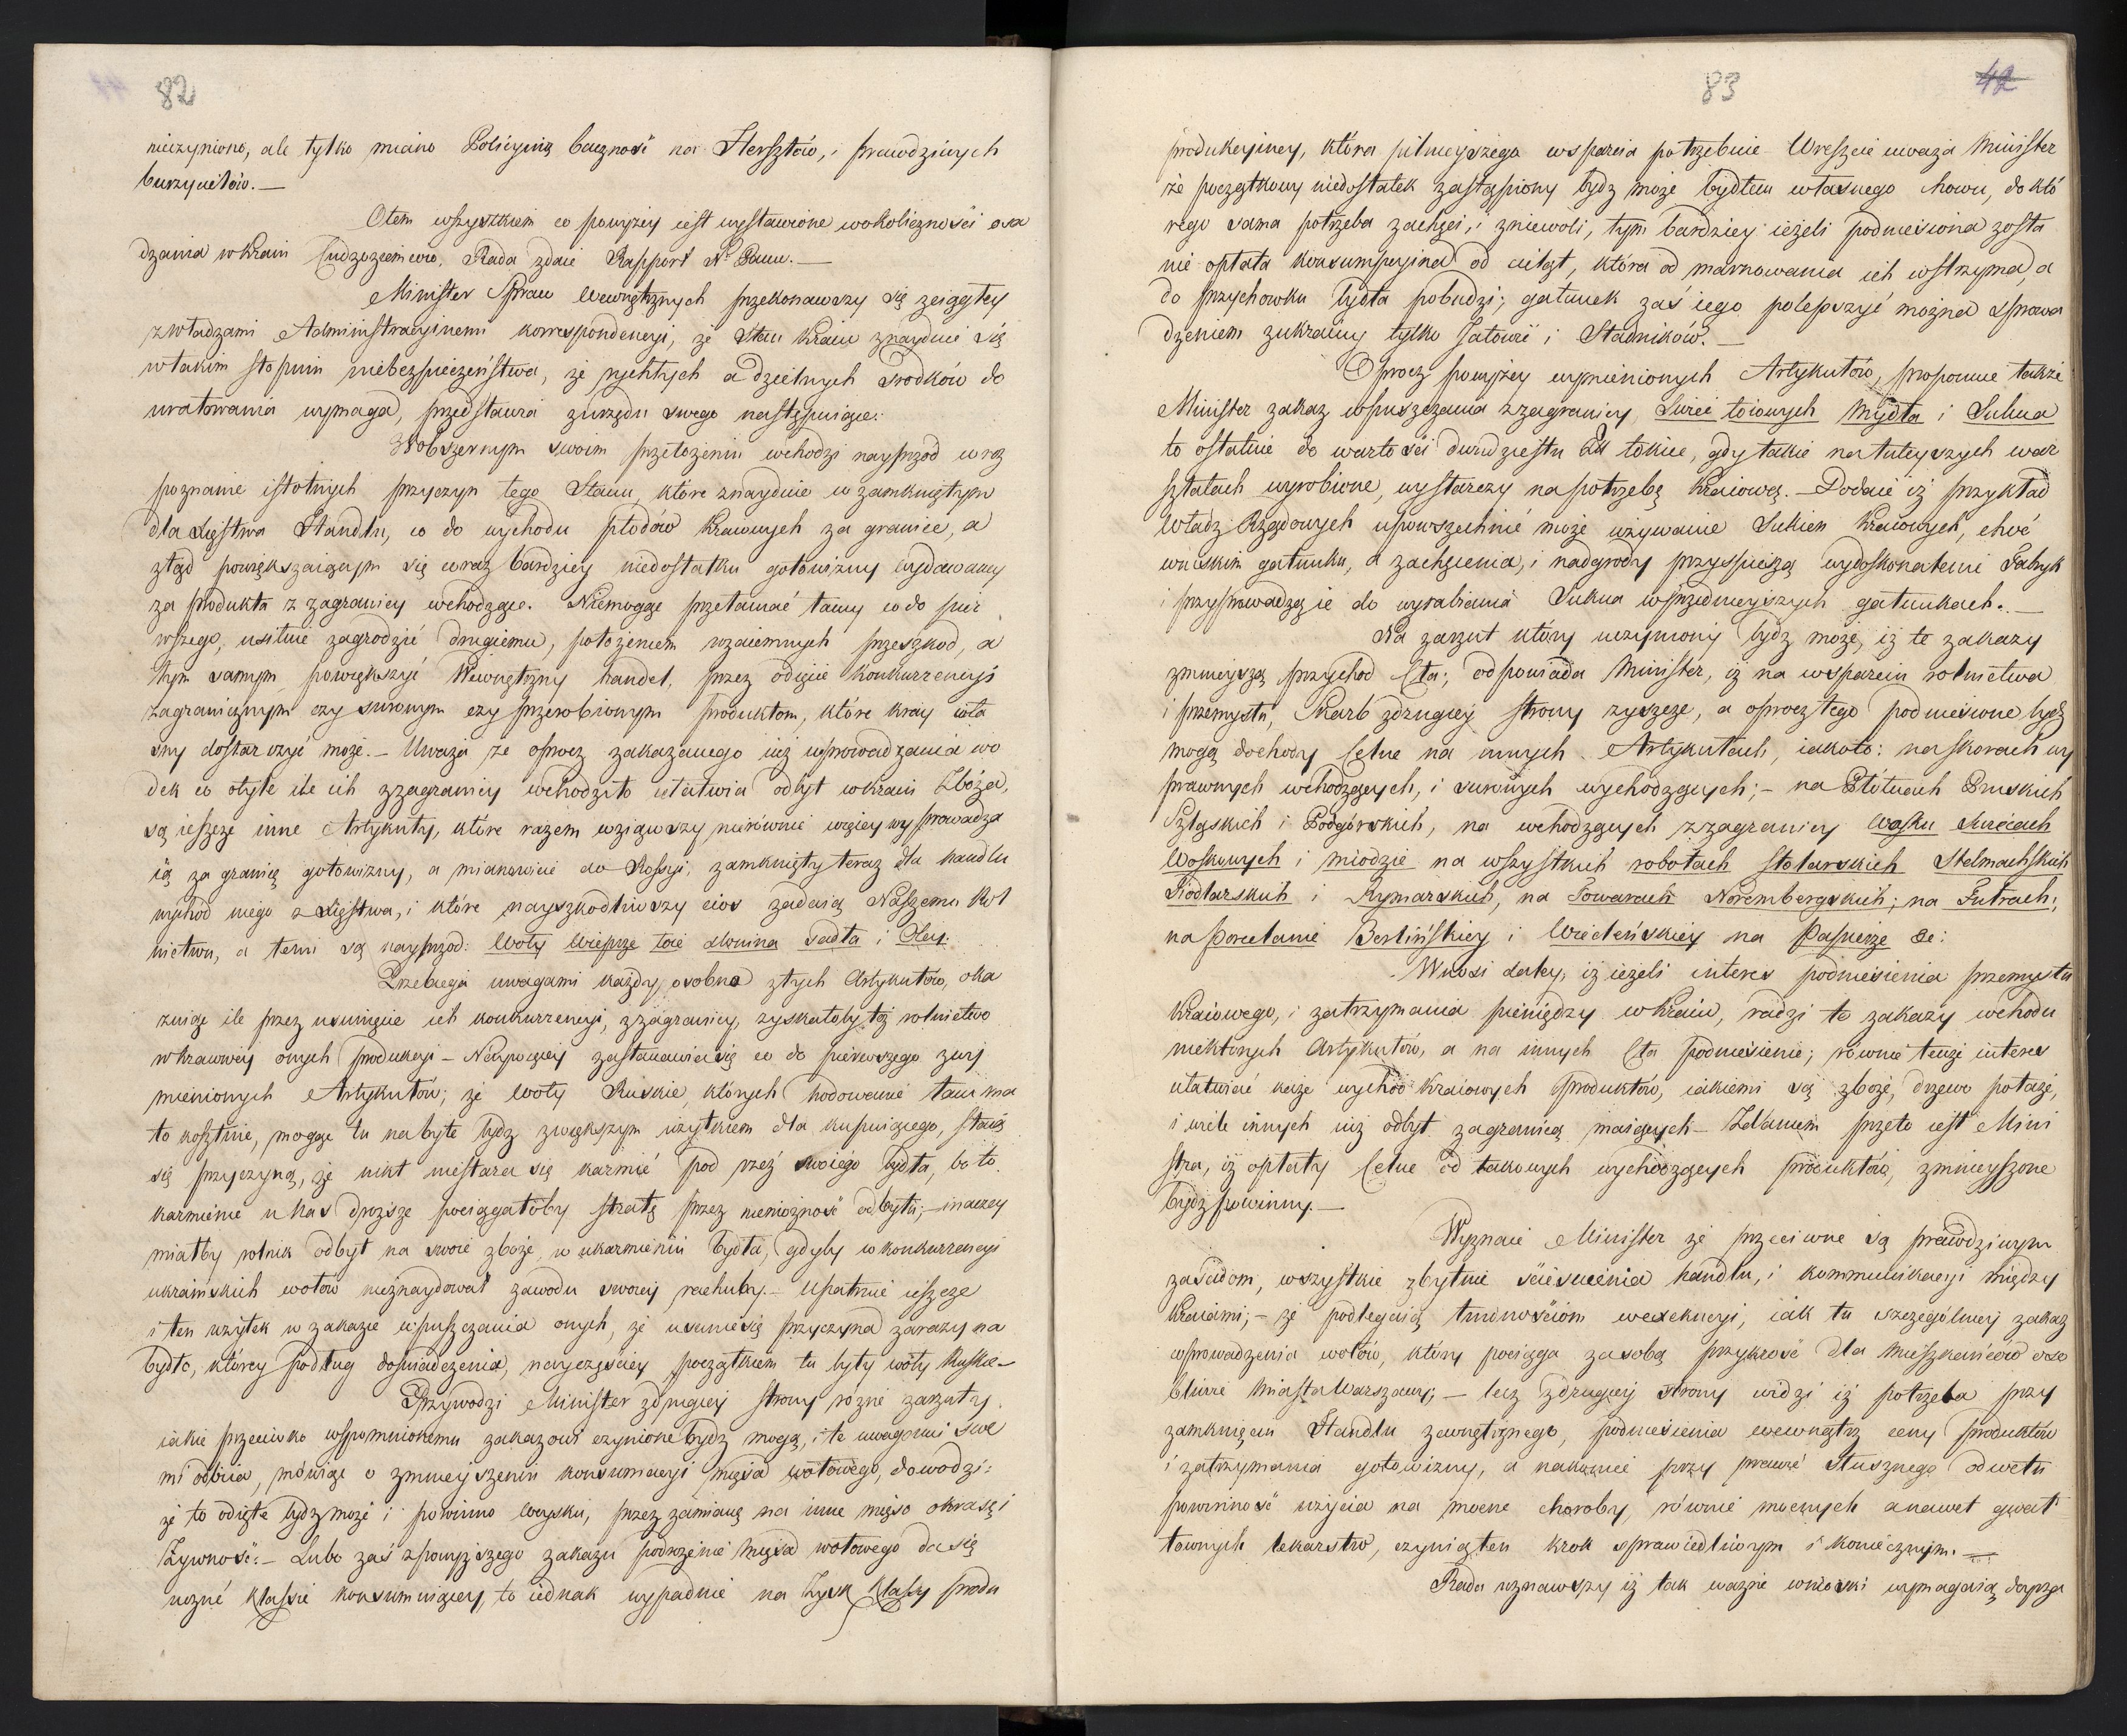 82
nieczyniono, ale tylko miano Policyiną baczność na Hersztów, i prawdziwych
burzycielów. —
Otem wszystkiem co powyżey iest wystawione wokoliczności osa
dzania w Kraiu Cudzoziemców, Rada zdaie Rapport N. Panu. —
Minister Spraw Wewnętrznych przekonawszy się zciągłey
zwładzami Administracyinemi korrespondencyi, że Stan Kraiu znayduie się
wtakim stopniu niebezpieczeństwa, że rychłych a dzielnych srodków do
uratowania wymaga, przedstawia zurzędu swego następuiące:
Wobszernym swoim przełożeniu wchodzi nayprzod w roz
poznanie istotnych przyczyn tego Stanu, które znayduie w zamkniętym
dla Xięstwa Handlu, co do wychodu płodów Kraiowych za granice, a
ztąd powiększaiącym się coraz bardziey niedostatku gotowizny wydawaney
za produkta z zagranicy wchodzące. Niemogąc przełamać tamy co do pier
wszego, usilnie zagrodzić drugiemu, położeniem wzaiemnych przeszkod, a
tym samym powiększyć Wewnętrzny handel, przez odięcie Konkurrencyi
zagranicznym czy surowym czy przerobionym produktom, które kray wła
sny dostarczyć może. — Uważa że oprocz zakazanego iuż wprowadzania wo
dek co otyle ile ich zzagranicy wchodziło ułatwia odbyt w Kraiu Zboża,
są ieszcze inne Artykuły, które razem wziąwszy nierównie więcey wyprowadza
ią za granicę gotowizny, a mianowicie do Rossyi, zamknięty teraz dla handlu
wychod mego z Xięstwa, i które nayszkodliwszy cios zadaią Naszemu Rol
nictwu, a temi są nayprzod: Woły Wieprze łoie słonina sadła i Oley.
Przebiega uwagami każdy osobno ztych Artykułów, oka
zuiąc ile przez usunięcie ich konkurrencyi, zzagranicy, zyskałoby toż rolnictwo
w kraiowey onych produkcyi — Naywięcey zastanawia się co do pierwszego zwy
mienionych Artykułów; że woły Ruskie, których hodowanie tam ma
ło kosztuie, mogąc tu nabyte bydz zwiększym użytkiem dla kupuiącego, staią
się przyczyną, że nikt niestara się karmić pod rzeź swoiego bydła, bo to
karmienie u Nas droższe pociągałoby stratę przez niemożność odbytu; — inaczey
miałby rolnik odbyt na swoie zboże w ukarmieniu bydła, gdyby w konkurrencyi
ukrainskich wołow nieznaydował zawodu swoiey rachuby. — Upatruie ieszcze
i ten użytek w zakazie wpuszczania onych, że usunie się przyczyna zarazy na
bydło, którey podług doświadczenia, nayczęściey początkiem tu były woły Ruskie —
Przywodzi Minister zdrugiey strony rozne zarzuty
iakie przeciwko wspomnionemu zakazowi czynione bydz mogą, i te uwagami swe
mi odbiia, mówiąc o zmnieyszeniu konsumacyi mięsa wołowego, dowodzi:
że to odięte bydz może i powinno Woysku, przez zamianę na inne mięso okrasę i
Zywność: — Lubo zaś zpowyższego zakazu podrożenie Mięsa wołowego da się
uczuć Klassie konsumuiącey, to iednak wypadnie na Zysk Klassy produ

83 42
produkcyiney, która pilnieyszego wsparcia potrzebuie — Wreszcie uważa Minister
że początkowy niedostatek zastąpiony bydz może bydłem własnego chowu, do któ
rego sama potrzeba zachęci, i zniewoli, tym bardziey ieżeli podniesiona zosta
nie opłata konsumpcyina od cieląt, która od marnowania ich wstrzyma, a
do przychowku bydła pobudzi; gatunek zaś iego polepszyć można sprowa
dzeniem zukrainy tylko Jałowic i Stadników. —
Oprocz powyżey wymienionych Artykułów, proponuie także
Minister zakaz wpuszczania zzagranicy, Swiec łoiowych Mydła i Sukna
to ostatnie do wartości dwudziestu Zł łokiec, gdy takie na tuteyszych war
sztatach wyrobione, wystarczy na potrzebę Kraiową. — Dodaie iż przykład
Władz Rządowych upowszechnić może używanie Sukien Kraiowych, choć
wniskim gatunku, a zachęcenia, i nadgrody przyspieszą wydoskonalenie Fabryk
i przyprowadzą ie do wyrabiania Sukna wprzednieyszych gatunkach. —
Na zarzut który uczyniony bydz może, iż te zakazy
zmnieyszą przychod Cła; odpowiada Minister, iż na wsparciu rolnictwa
i przemysłu, Skarb zdrugiey strony zyszcze, a oprocz tego podniesione bydz
mogą dochody Celne na innych Artykułach, iakoto: na skorach wy
prawnych wchodzących, i surowych wychodzących; — na Płótnach Pruskich
Szląskich i Podgórskich, na wchodzących zzagranicy Wosku Swiecach
Woskowych i miodzie na wszystkich robotach stolarskich Stelmachskich
Siodlarskich i Rymarskich, na Towarach Norembergskich; na Futrach;
na Porcelanie Berlińskiey i Wiedeńskiey na Papierze &c:
Wnosi daley, iż ieżeli interes podniesienia przemysłu
Kraiowego, i zatrzymania pieniędzy w Kraiu, radzi te zakazy wchodu
niektorych Artykułów, a na innych Cła podniesienie; równie tenże interes
ułatwiać każe wychod Kraiowych produktów, iakiemi są zboże, drzewo potaże,
i wiele innych iuż odbyt zagranicą maiących — Zdaniem przeto iest Mini
stra, iż opłaty Celne od takowych wychodzących produktów, zmnieyszone
bydz powinny. —
Wyznaie Minister że przeciwne są prawdziwym
zasadom, wszystkie zbytnie ścieśnienia handlu, i kommunikacyi między
Kraiami; — że podlegaią trudnościom wexekucyi, iak tu szczególniey zakaz
wprowadzenia wołów, który pociąga za sobą przykrość dla Mieszkańców oso
bliwie Miasta Warszawy; — lecz zdrugiey strony widzi iż potrzeba przy
zamknięciu Handlu zewnętrznego, podniesienia wewnątrz ceny produktów
i zatrzymania gotowizny, a nakoniec przy prawie słusznego odwetu
powinność użycia na mocne choroby, równie mocnych a nawet gwał
townych lekarstw, czynią ten krok sprawiedliwym i koniecznym. —
Rada uznawszy iż tak ważne wnioski wymagaią doyrza